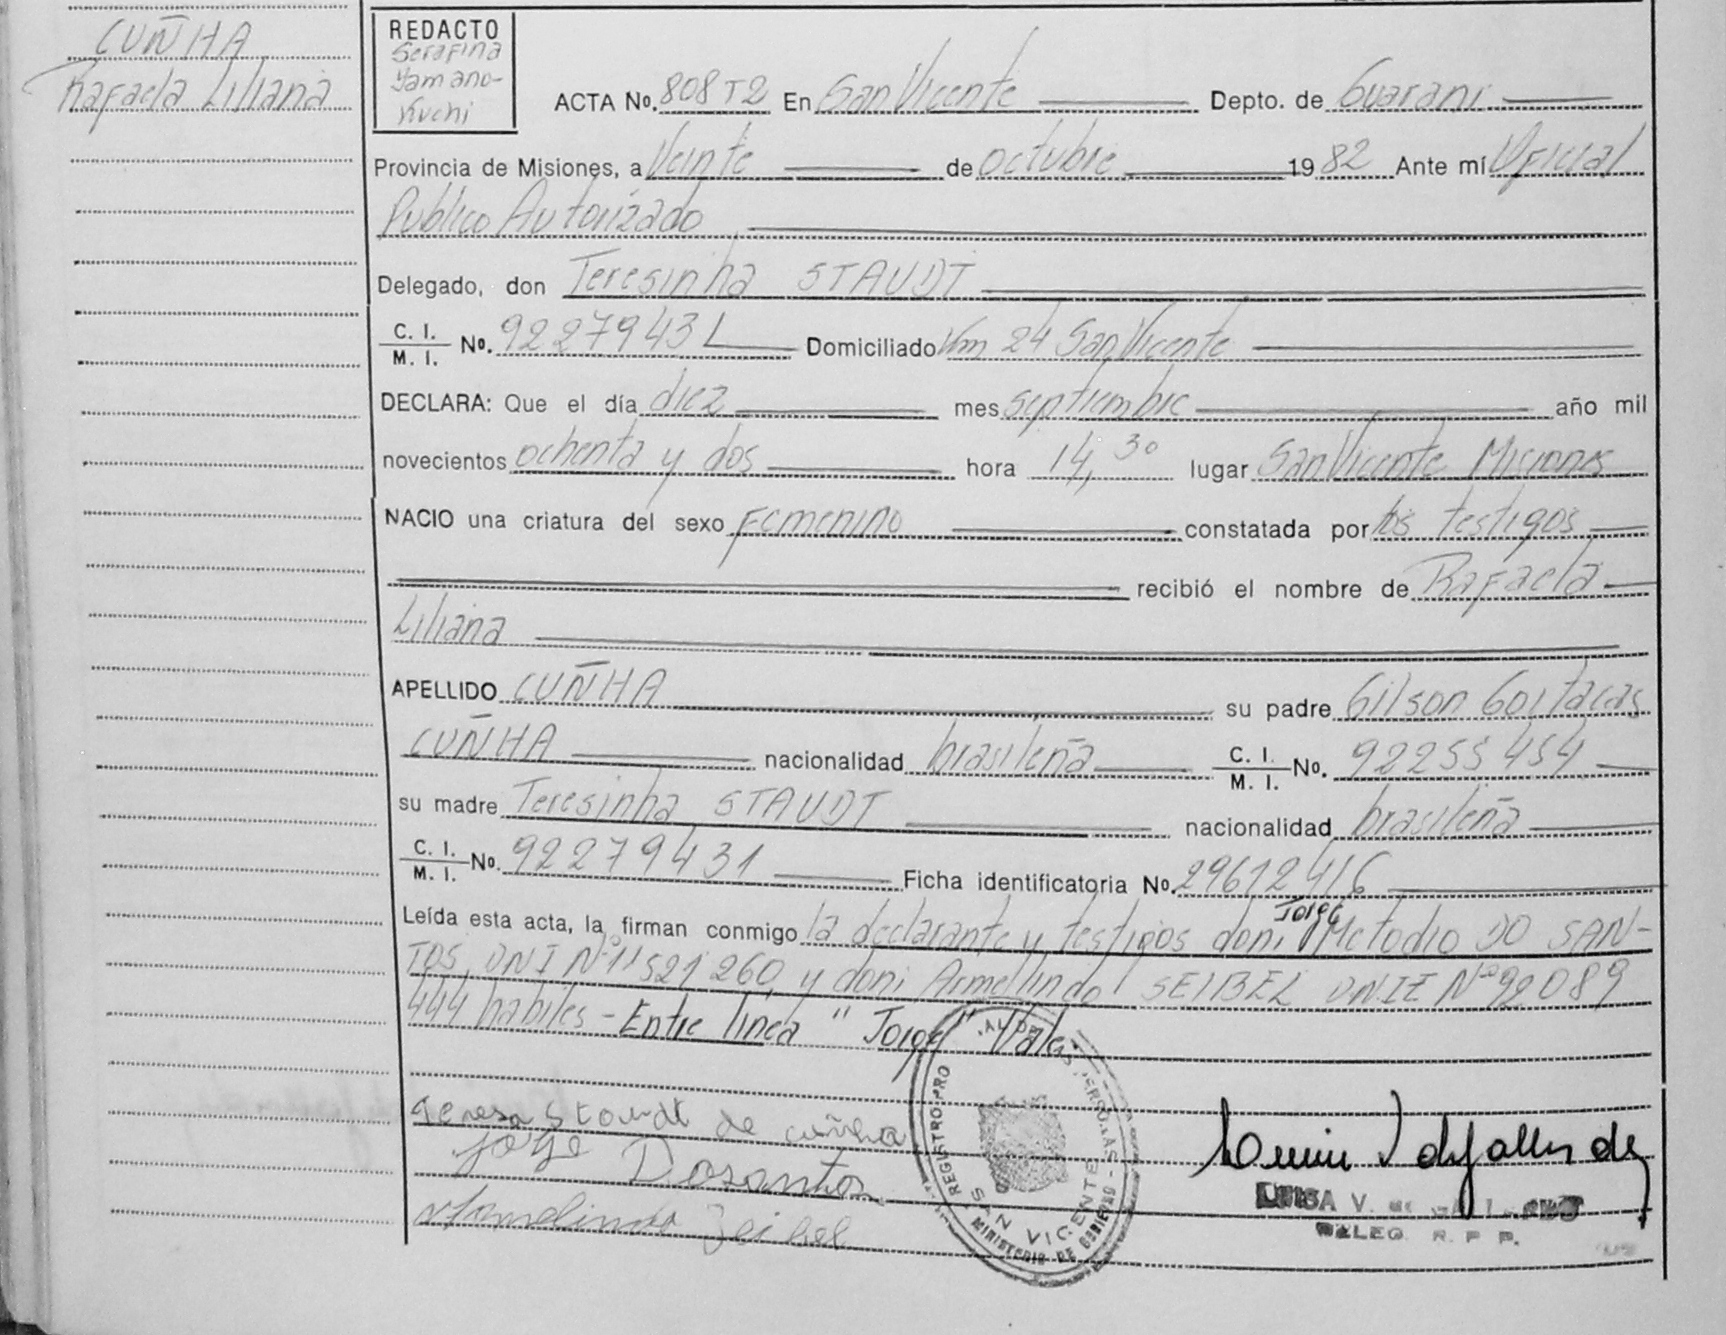 CUÑHA
Rafaela Liliana
REDACTO
Serafina
Yamano-
Kuchi
ACTA No. 808 T2 En San Vicente Depto. de Guarani
Provincia de Misiones, a Veinte de octubre 1982 Ante mí Oficial
Publico Autorizado
Delegado, don Teresinha STAUDT
C. I. / M. I. No. 92279431 Domiciliado Km 24 San Vicente
DECLARA: Que el día diez mes septiembre año mil
novecientos ochenta y dos hora 14,30 lugar San Vicente Misiones
NACIO una criatura del sexo Femenino constatada por los testigos
recibió el nombre de Rafaela
Liliana
APELLIDO CUÑHA su padre Gilson Goitacas
CUÑHA nacionalidad brasileña C. I. / M. I. No. 92255454
su madre Teresinha STAUDT nacionalidad brasileña
C. I. / M. I. No. 92279431 Ficha identificatoria No. 29612416
Leída esta acta, la firman conmigo la declarante y testigos don: Jorge Metodio DO SAN-
TOS, DNI Nº 11521260, y don: Armelindo SEIBEL DNIE Nº 92089
444 habiles - Entre linea "Jorge" Vale
Teresa Staudt de cuñha
Jorge Dosantos
Armelindo Seibel
REGISTRO PRO AL DE PERSONAS
SAN VICENTE
MINISTERIO DE GOBIERNO
LUISA V.
DELEG. R. P. P.